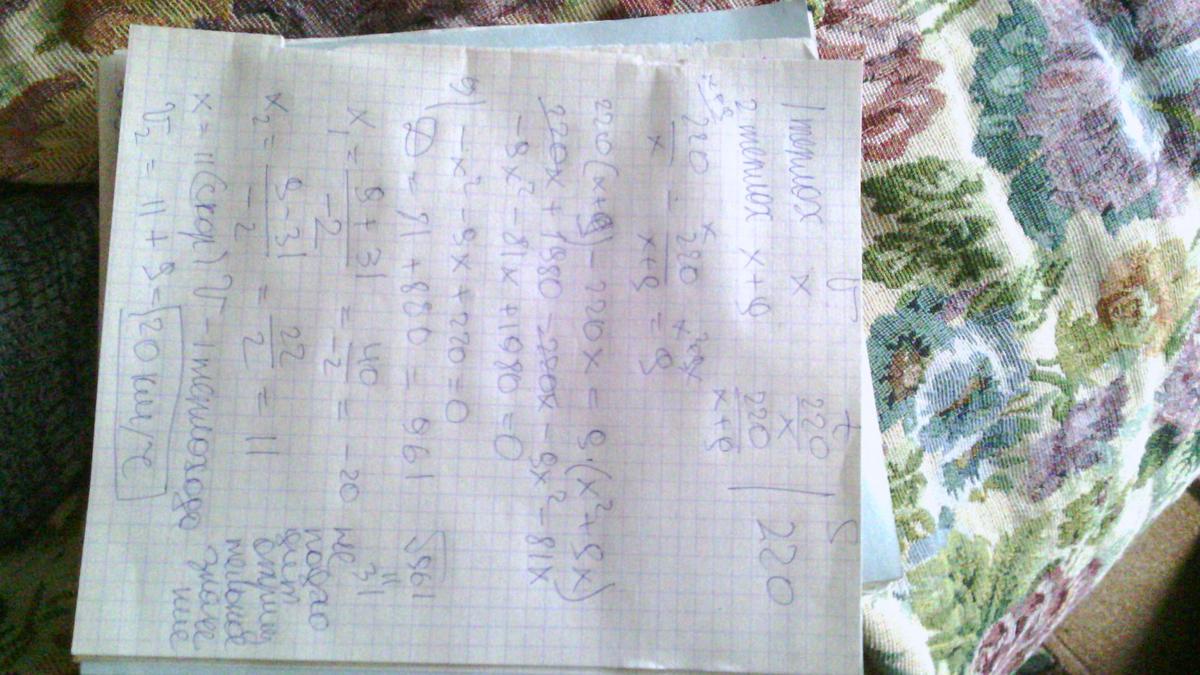 V t S
1 теплох x 220/x | 220
2 теплох x+9 220/x+9
220/x - 220/x+9 = 9
220(x+9) - 220x = 9·(x²+9x)
220x + 1980 - 220x - 9x² - 81x
-9x² - 81x + 1980 = 0
9) -x² - 9x + 220 = 0
D = 81 + 880 = 961 √961 = 31
x₁ = 9 + 31/-2 = 40/-2 = -20 не подхо
x₂ = 9 - 31/-2 = 22/2 = 11
x = 11 (км/ч) V - 1 теплохода
V₂ = 11 + 9 = 20 км/ч